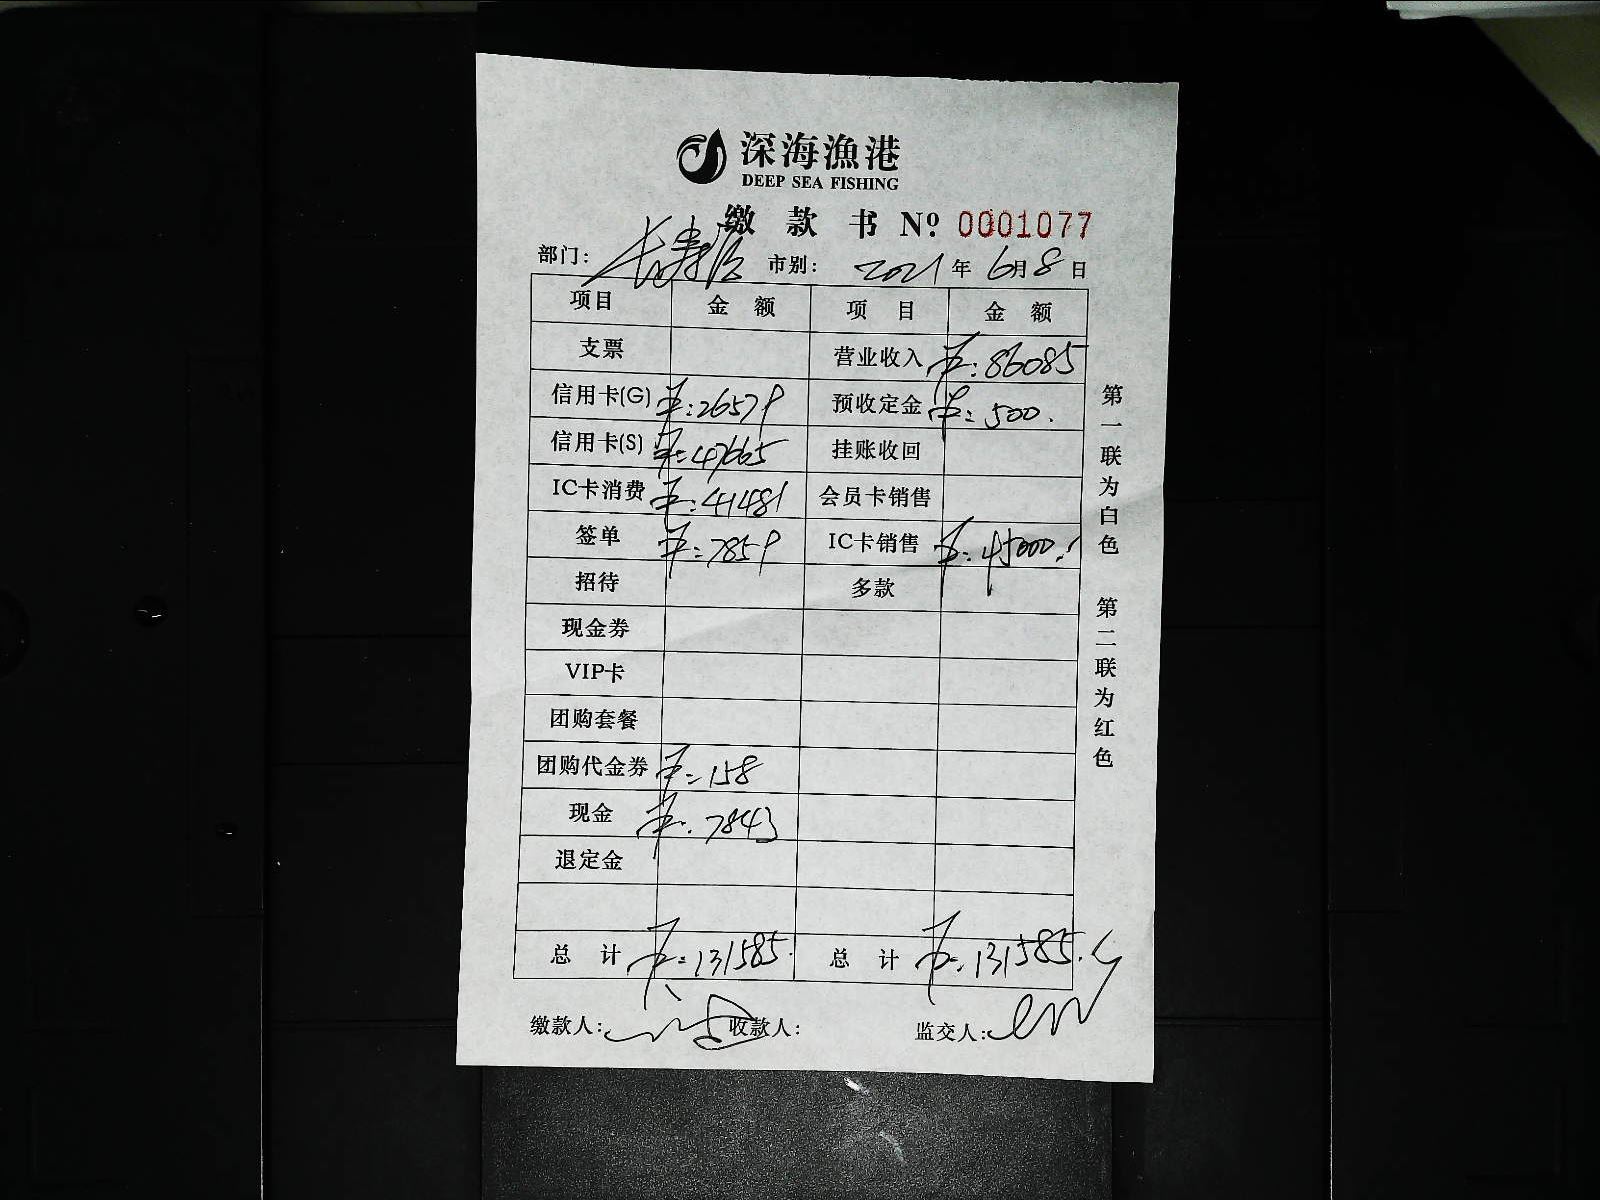 深海漁港
DEEP SEA FISHING
缴款书 Nº 0001077
部门: 长寿路 市别: 2021年6月8日
项目 金额 项目 金额
支票 营业收入 ¥:86085
信用卡(G) ¥:26579 预收定金 ¥:500.
信用卡(S) ¥:47665 挂账收回
IC卡消费 ¥:41481 会员卡销售
签单 ¥:7859 IC卡销售 ¥:45000.
招待 多款
现金券
VIP卡
团购套餐
团购代金券 ¥:158
现金 ¥:7843
退定金
总计 ¥:131585. 总计 ¥:131585.
缴款人: 收款人: 监交人:
第一联为白色 第二联为红色